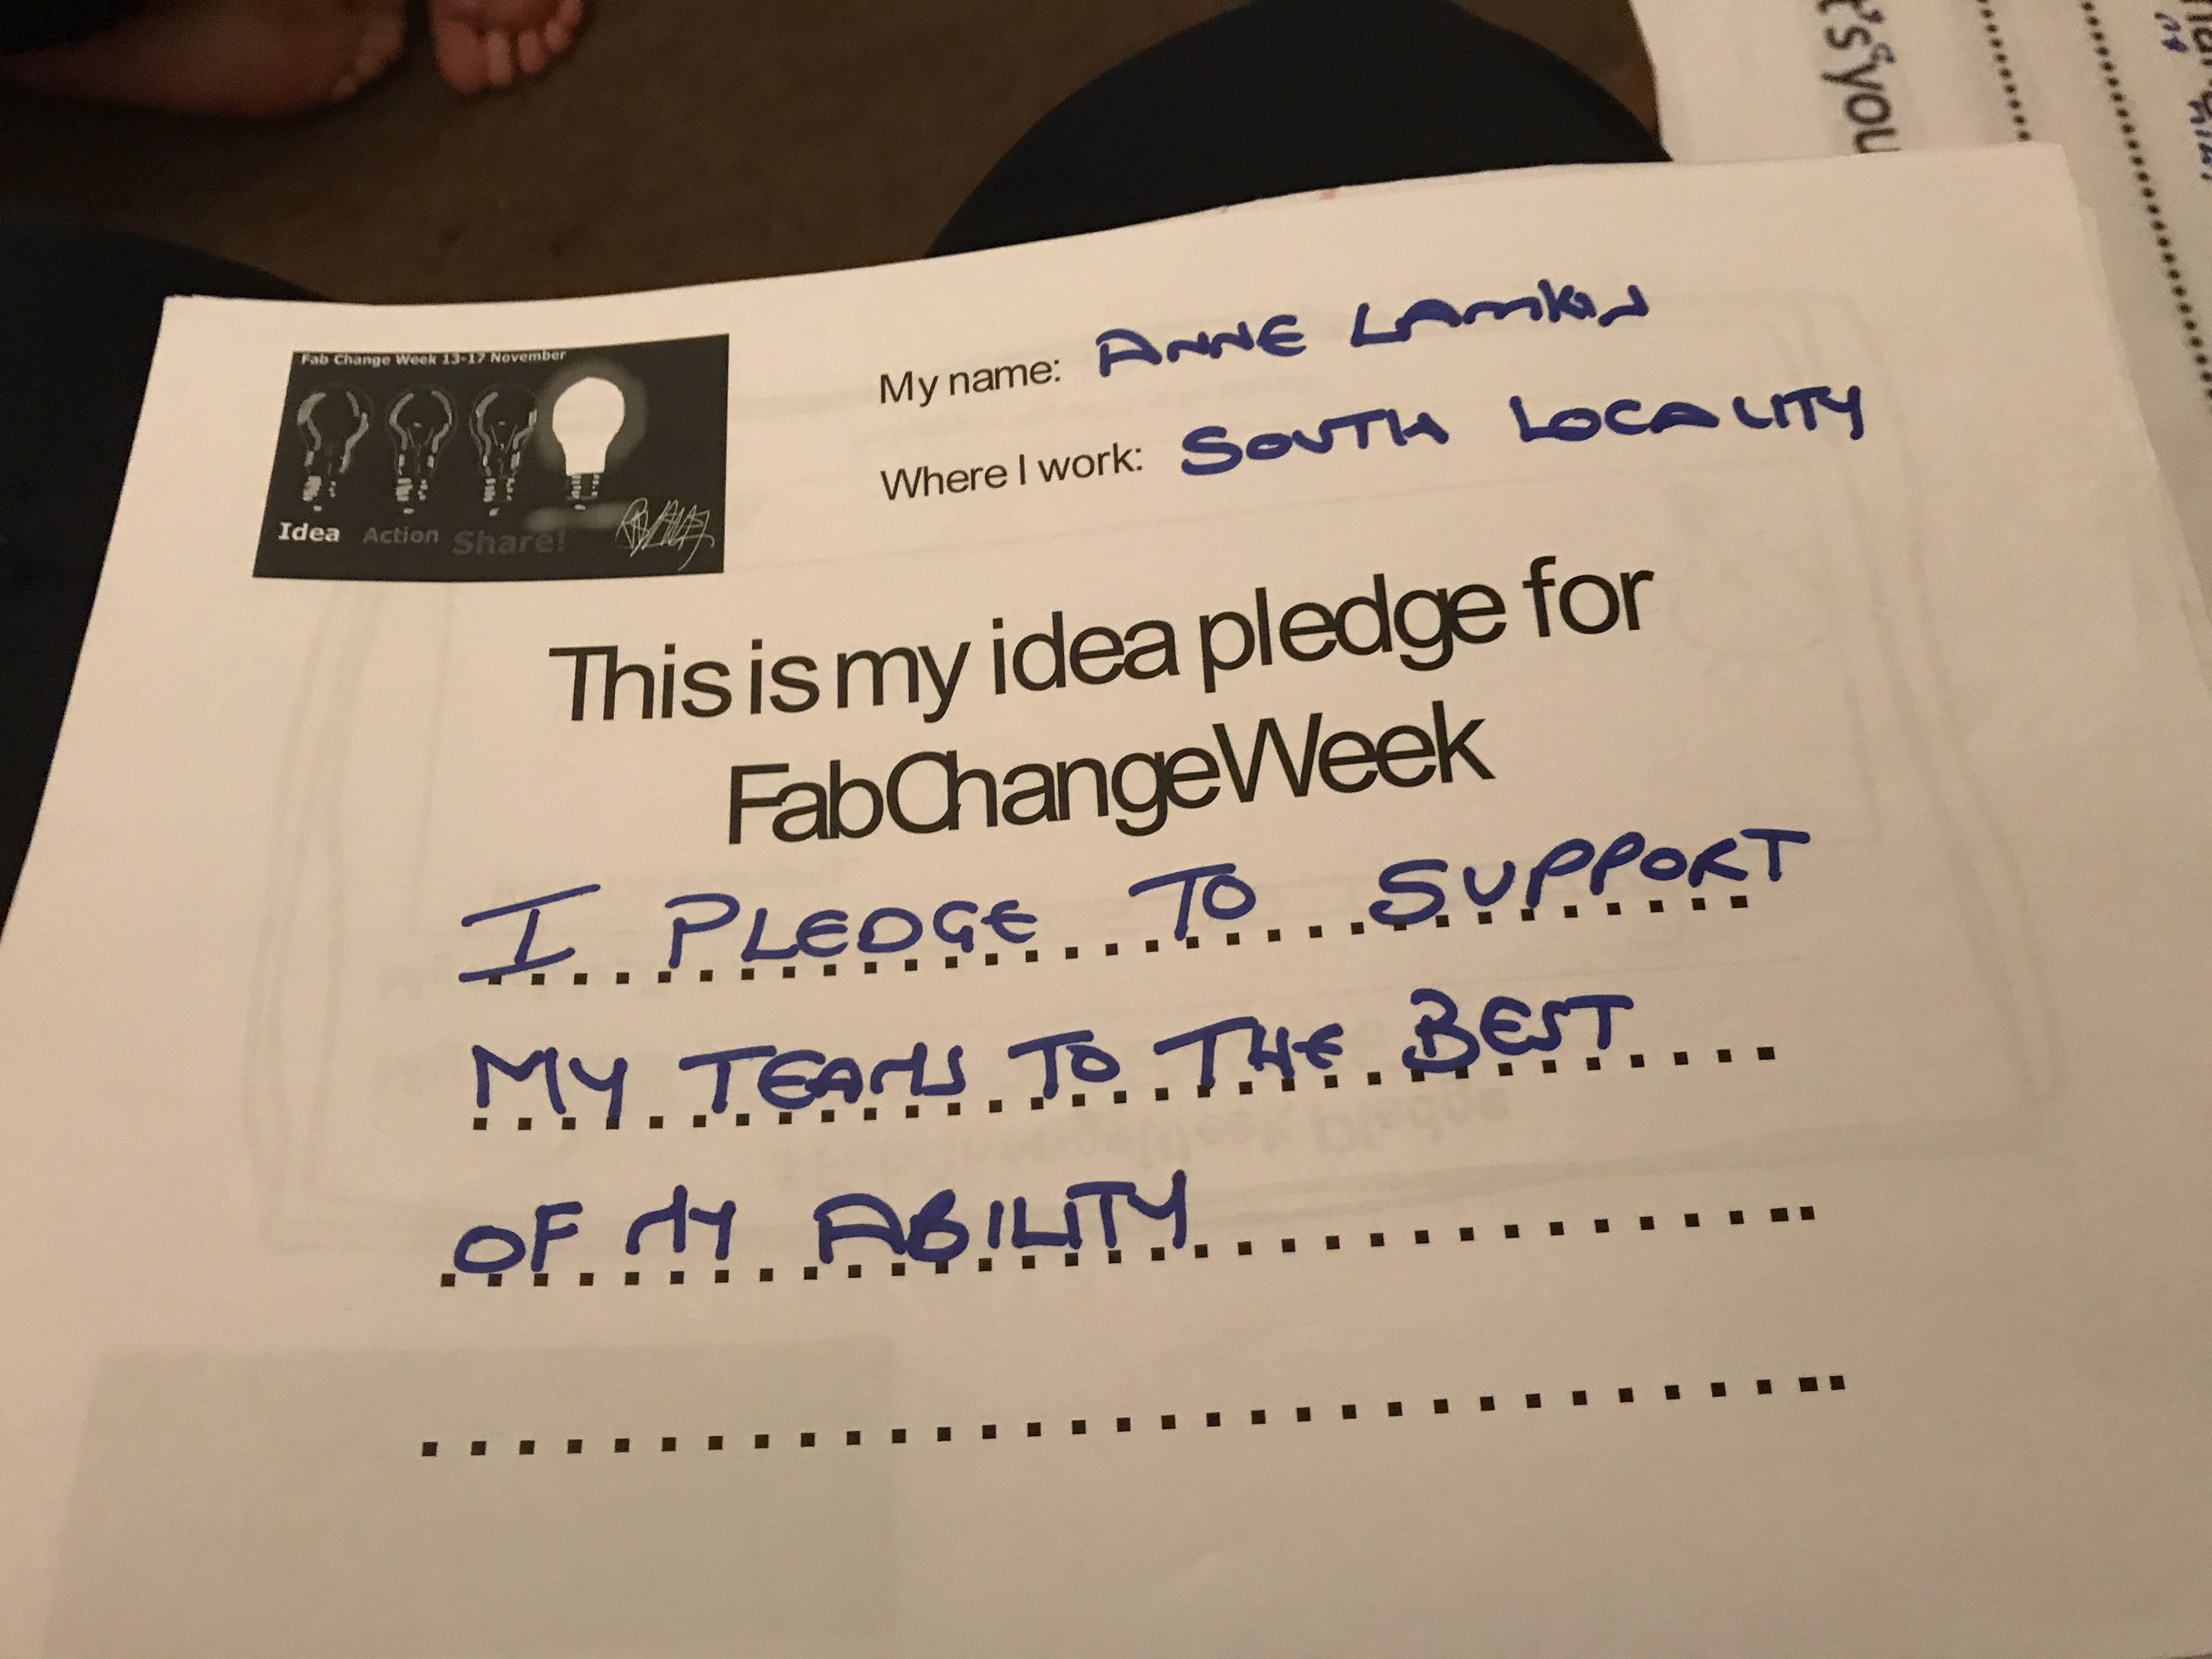 Fab Change Week 13-17 November
Idea Action Share!
My name: ANNE LAMKIN
Where I work: SOUTH LOCALITY
This is my idea pledge for
FabChangeWeek
I PLEDGE TO SUPPORT
MY TEAMS TO THE BEST
OF MY ABILITY
t's you